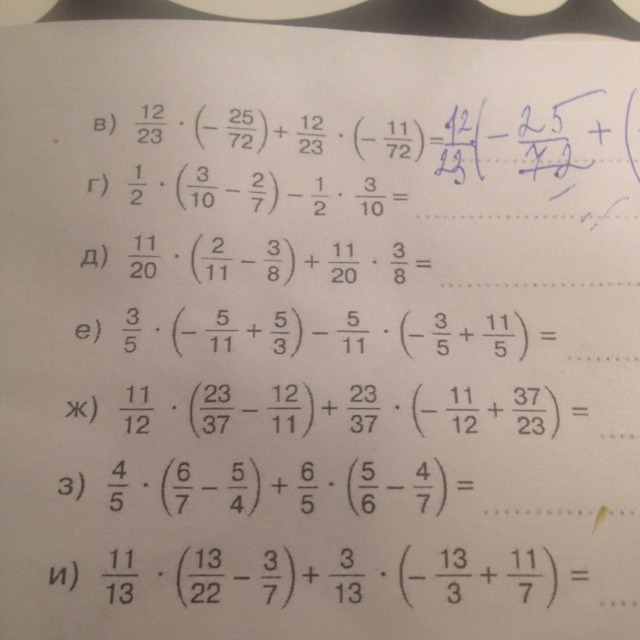 в) 12/23 · (− 25/72) + 12/23 · (− 11/72) = 12/23 (− 25/72 + (
г) 1/2 · (3/10 − 2/7) − 1/2 · 3/10 =
д) 11/20 · (2/11 − 3/8) + 11/20 · 3/8 =
е) 3/5 · (− 5/11 + 5/3) − 5/11 · (− 3/5 + 11/5) =
ж) 11/12 · (23/37 − 12/11) + 23/37 · (− 11/12 + 37/23) =
з) 4/5 · (6/7 − 5/4) + 6/5 · (5/6 − 4/7) =
и) 11/13 · (13/22 − 3/7) + 3/13 · (− 13/3 + 11/7) =